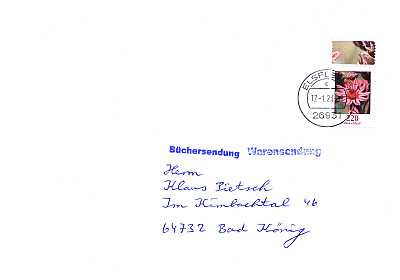 ELSFLE
17.-1.2
26931
220
Büchersendung Warensendung
Herrn
Klaus Bietsch
Im Kimbachtal 46
64732 Bad König